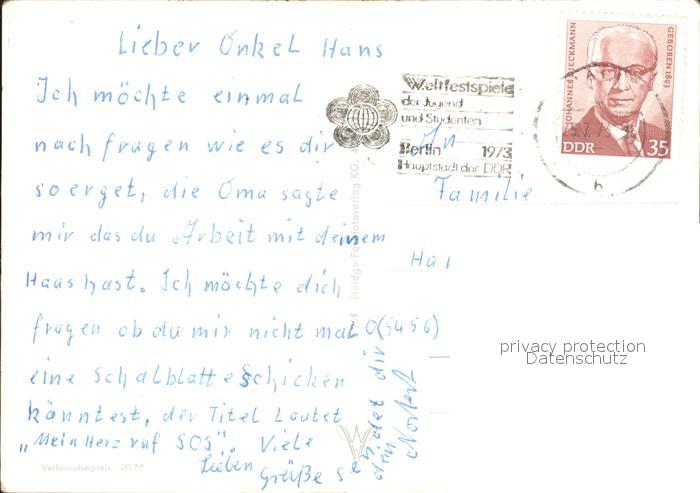 Lieber Onkel Hans
Ich möchte einmal
nach fragen wie es dir
so erget, die Oma sagte
mir das du Arbeit mit deinem
Haus hast. Ich möchte dich
fragen ob du mir nicht mal
eine Schalblatte schicken
könntest, der Titel Lautet
„Mein Herz ruf SOS". Viele
Lieben Grüße
dir
Norbert
Weltfestspiele
der Jugend
und Studenten
Berlin 1973
Hauptstadt der DDR
JOHANNES DIECKMANN
GEBOREN 1893
DDR 35
b
An
Familie
Ha
O(5456)
privacy protection
Datenschutz
Verbraucherpreis -,20 M